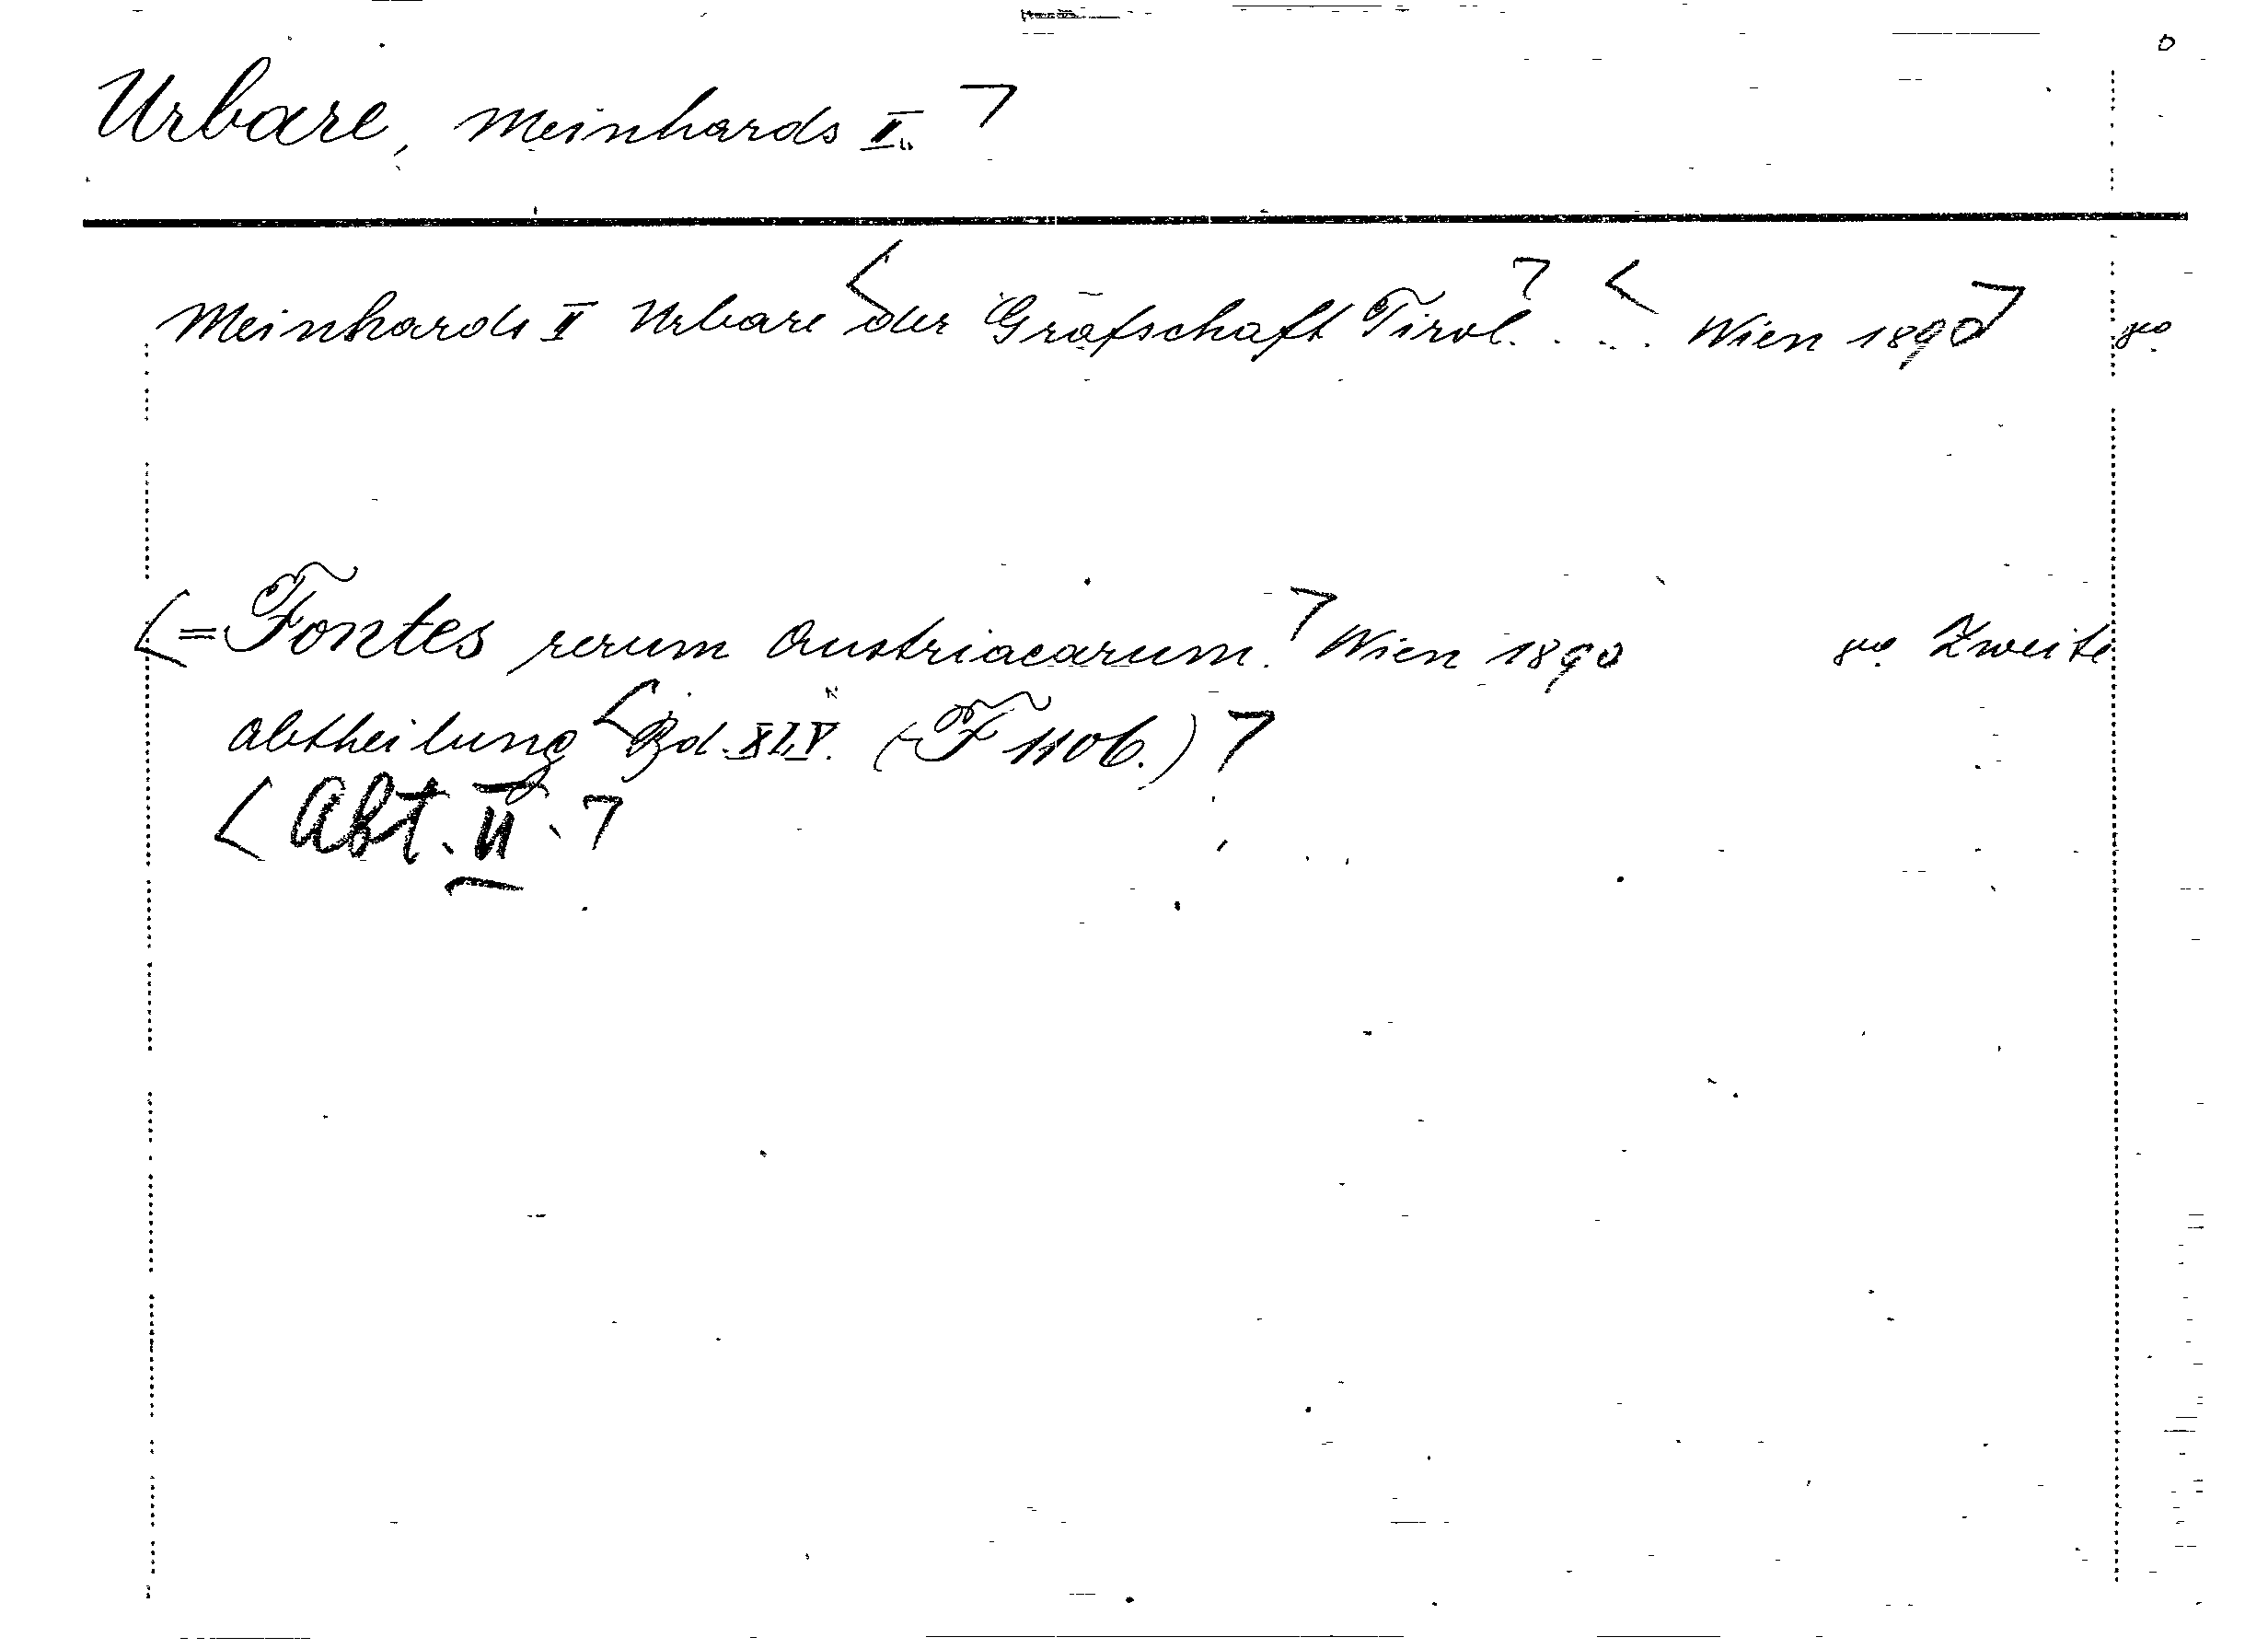 Urbare, Meinhards II.
Meinhards II Urbare der Grafschaft Tirol. . . . . Wien 1890 8o
<= Fontes rerum Austriacarum. Wien 1890 8o. Zweite
Abtheilung Bd. XLV. (F 1106.)
Abt. II.